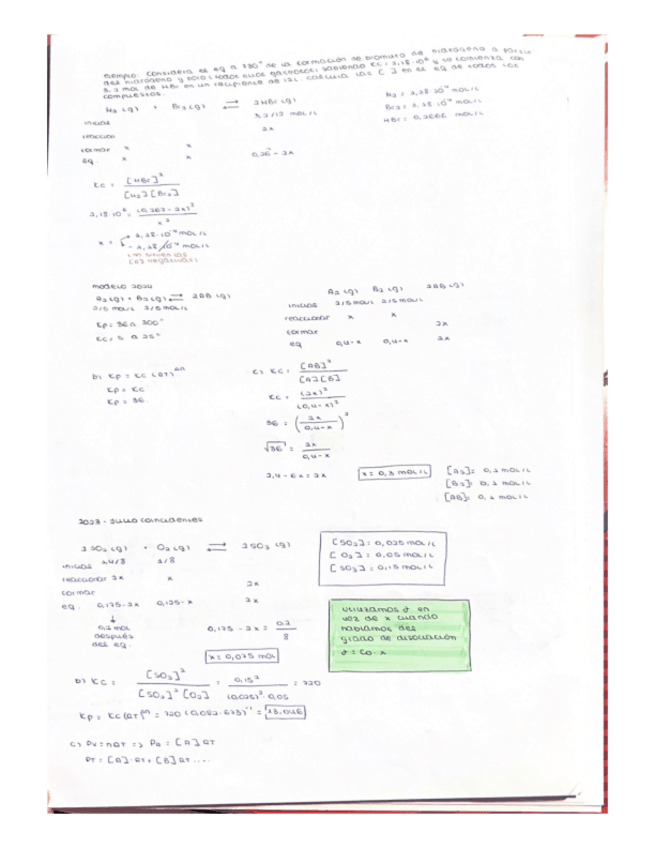 Ejemplo: considera el eq a 730° de la formación de bromuro de hidrógeno a partir
del hidrógeno y bromo (todos ellos gaseosos) sabiendo Kc: 2,18·10⁶ y se comienza con
3,2 mol de HBr en un recipiente de 12L. calcula las [ ] en el eq de todos los
compuestos.
H₂ (g) + Br₂ (g) ⇄ 2HBr (g)
H₂ =
Br₂ =
HBr: 0,2666 mol/L
inicial 3,2/12 mol/L
reaccion 2x
formar x x
eq. x x 0,26 - 2x
Kc = [HBr]² / [H₂][Br₂]
2,18·10⁶ = (0,267 - 2x)² / x²
x =
modelo 2024
A₂ (g) + B₂ (g) ⇄ 2AB (g)
2/5 mol/L 2/5 mol/L
A₂ (g) B₂ (g) 2AB (g)
iniciales 2/5 mol/L 2/5 mol/L
reaccionar x x
formar 2x
eq 0,4-x 0,4-x 2x
b) Kp = Kc (RT)^Δn
Kp = Kc
Kp = 36.
c) Kc: [AB]² / [A][B]
Kc = (2x)² / (0,4-x)²
36 = (2x / 0,4-x)²
√36 = 2x / 0,4-x
2,4 - 6x = 2x
x = 0,3 mol/L
[A₂]: 0,1 mol/L
[B₂]: 0,1 mol/L
2023 - Julio coincidentes
2 SO₂ (g) + O₂ (g) ⇄ 2 SO₃ (g)
iniciales 1,4/8 1/8
reaccionar 2x x
formar 2x
eq. 0,175-2x 0,125-x 2x
0,2 mol
después
del eq.
0,175 - 2x = 0,2 / 8
x = 0,075 mol
[SO₂]: 0,025 mol/L
[O₂]: 0,05 mol/L
[SO₃]: 0,15 mol/L
utilizamos
en
vez de x cuando
hablamos del
grado de disociación
= Co · x
b) Kc: [SO₃]² / [SO₂]² [O₂] = 0,15² / (0,025)² · 0,05 = 720
Kp = Kc(RT)^Δn = 720 (0,082·673)⁻¹ = 13,046
c) PV = nRT => PA = [A] RT
PT = [A]·RT + [B] RT ....